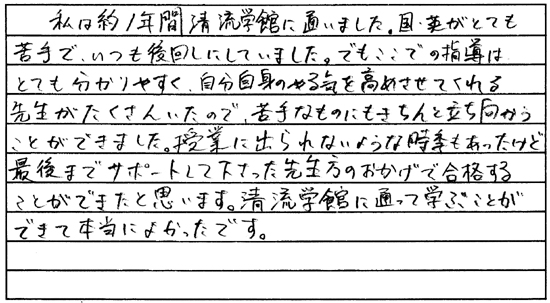 私は約1年間清流学館に通いました。国・英がとても
苦手で、いつも後回しにしていました。でもここでの指導は
とても分かりやすく、自分自身のやる気を高めさせてくれる
先生がたくさんいたので、苦手なものにもきちんと立ち向かう
ことができました。授業に出られないような時季もあったけど
最後までサポートして下さった先生方のおかげで合格する
ことができたと思います。清流学館に通って学ぶことが
できて本当によかったです。